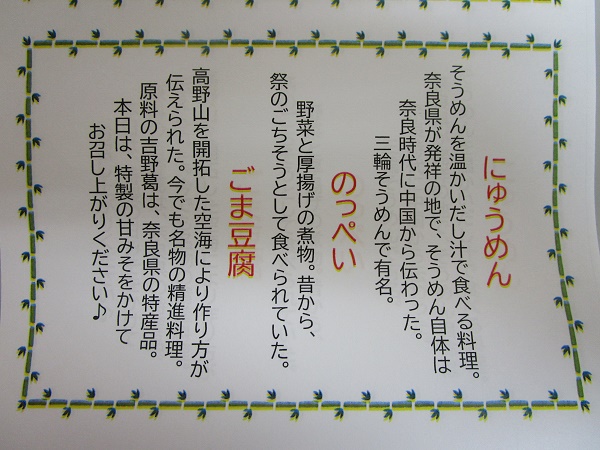 にゅうめん
そうめんを温かいだし汁で食べる料理。
奈良県が発祥の地で、そうめん自体は
奈良時代に中国から伝わった。
三輪そうめんで有名。
のっぺい
野菜と厚揚げの煮物。昔から、
祭のごちそうとして食べられていた。
ごま豆腐
高野山を開拓した空海により作り方が
伝えられた。今でも名物の精進料理。
原料の吉野葛は、奈良県の特産品。
本日は、特製の甘みそをかけて
お召し上がりください♪